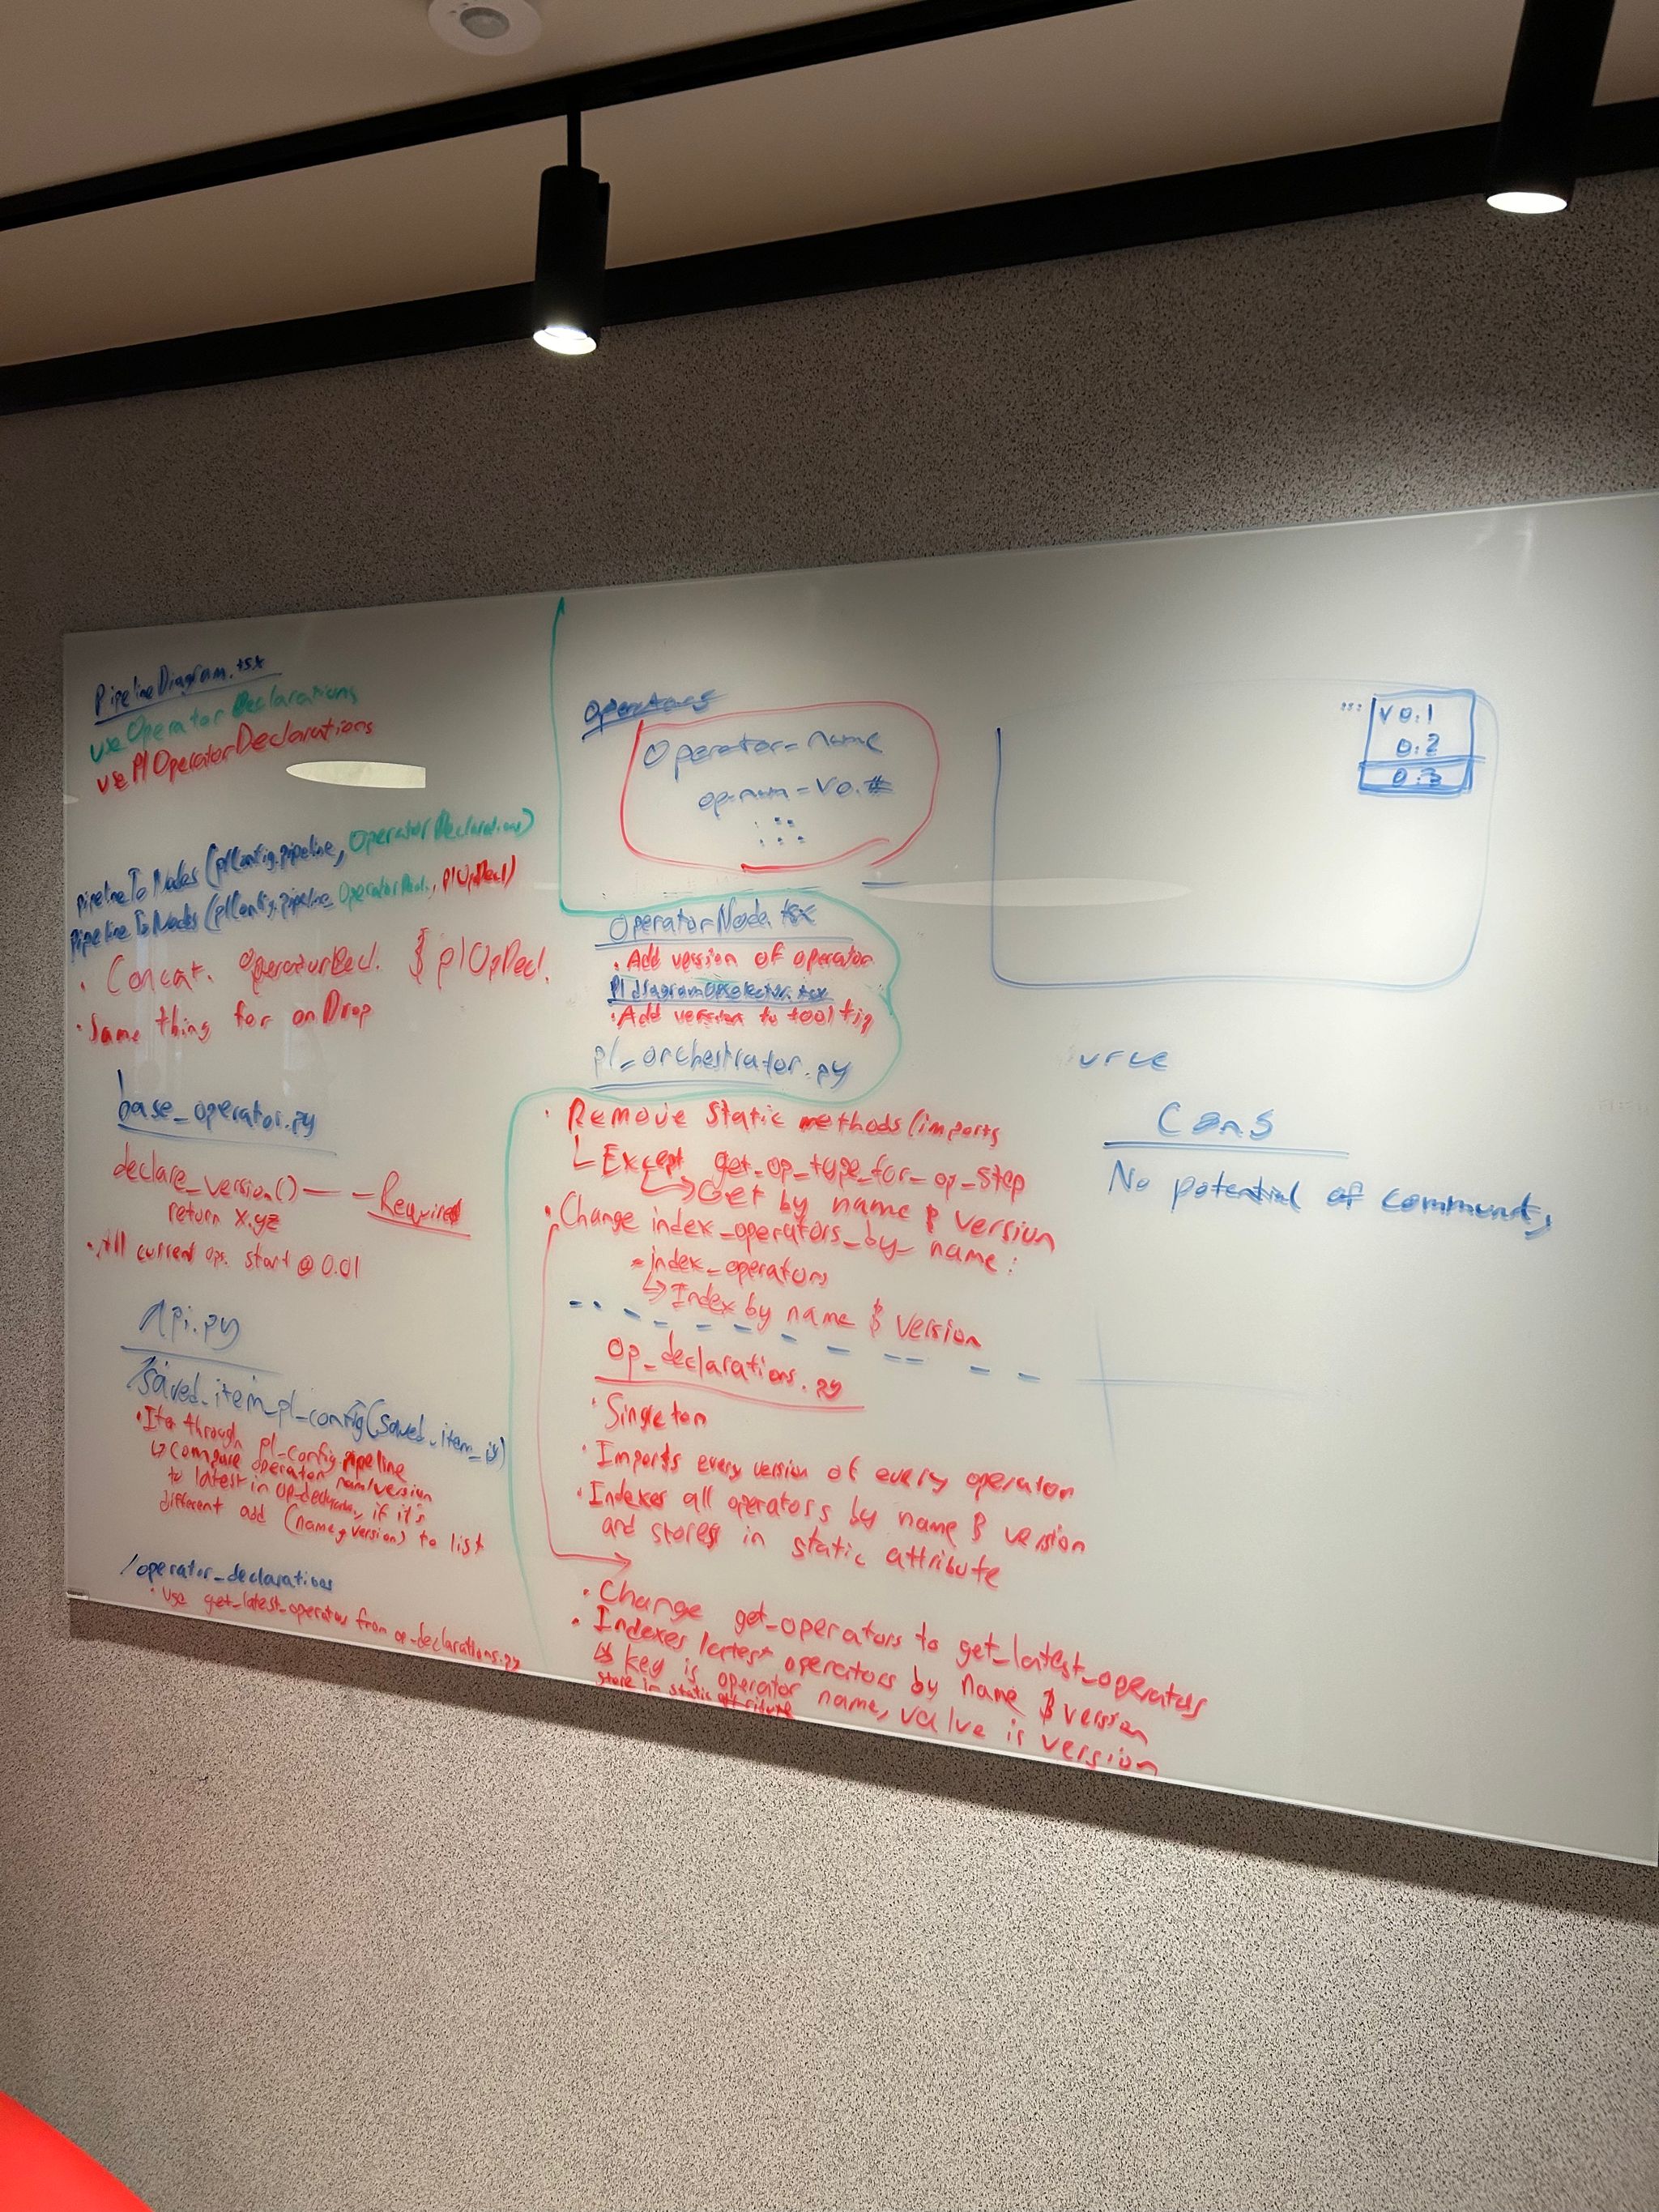 PipelineDiagram.tsx
use Operator Declarations
use Pl Operator Declarations
pipelineToNodes (plConfig.pipeline, Operator Declarations)
pipelineToNodes (plConfig.pipeline, OperatorDecl., PlOpDecl)
· Concat. OperatorDecl. & plOpDecl.
· Same thing for onDrop
base_operator.py
declare_version() — — Required
return x.yz
· All current ops. start @ 0.01
Api.py
/saved_item_pl_config(saved_item_id)
· Iter through pl_config.pipeline
↳ compare operator name/version
to latest in op_declarations, if it's
different add (name, version) to list
/operator_declarations
· use get_latest_operators from op_declarations.py
operators
Operator_name
op_num = V0.#
OperatorNode.tsx
· Add version of operator
PldiagramOpSelector.tsx
· Add version to tooltip
pl_orchestrator.py
· Remove Static methods/imports
↳ Except get_op_type_for_op_step
↳ Get by name & version
· Change index_operators_by_name:
= index_operators
↳ Index by name & version
Op_declarations.py
· Singleton
· Imports every version of every operator
· Indexes all operators by name & version
and stores in static attribute
· Change get_operators to get_latest_operators
· Indexes latest operators by name & version
↳ key is operator name, value is version
store in static attribute
V 0.1
0.2
0.3
Cons
No potential of community